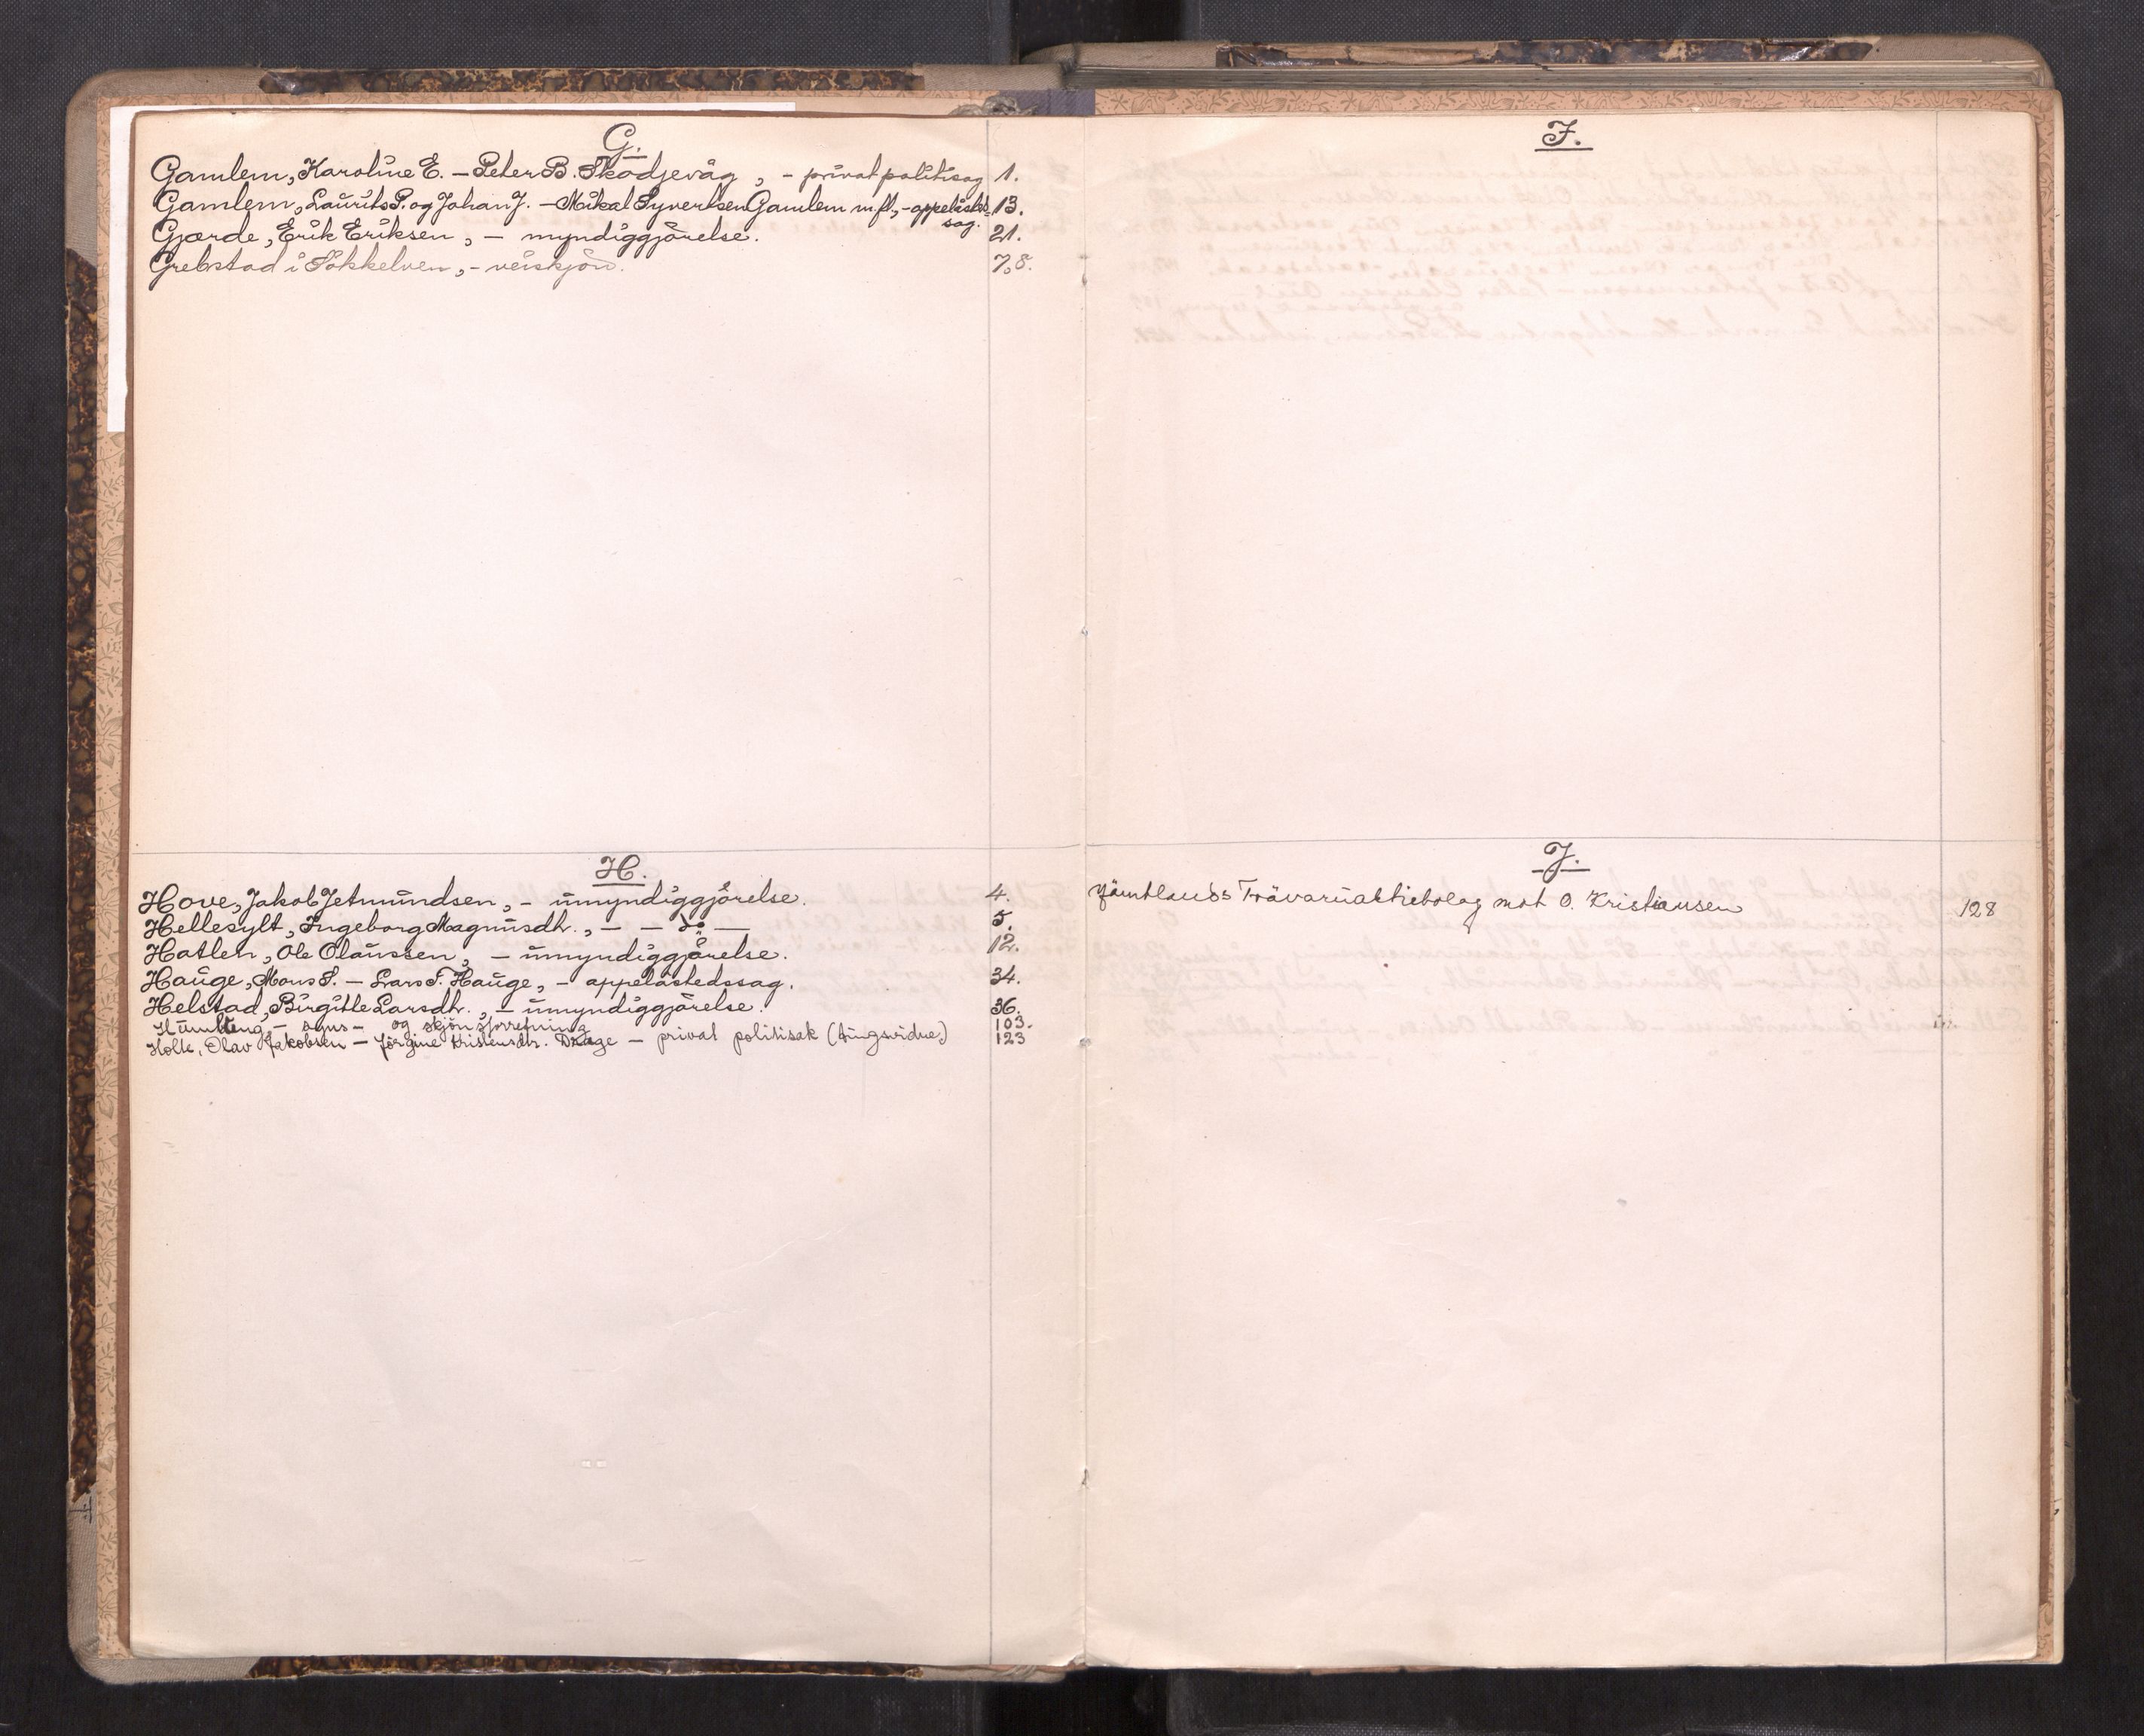 G.
Gamlem, Karoline E. – Peter B. Skodjevåg, – privat politisag 1.
Gamlem, Laurits P. og Johan J. – Mikal Syvertsen Gamlem m.fl., – appelåsteds- 13.
sag.
Gjærde, Erik Eriksen, – myndiggjörelse. 21.
Grebstad i Sökkelven, – veiskjön. 7,8.
H.
Hove, Jakob Jetmundsen, – umyndiggjörelse. 4.
Hellesylt, Ingeborg Magnusdtr., – – do – 5.
Hatlen, Ole Olaussen, – umyndiggjörelse. 12.
Hauge, Mons S. – Lars S. Hauge, – appelåstedssag. 34.
Helstad, Birgitte Larsdtr., – umyndiggjörelse. 36.
– syns – og skjönsforretning 103.
Holte, Olav Jakobsen – Jörgine Kristensdtr. Drage – privat politisak (tingsvidne) 123
F.
J.
Jämtlands Trävaruaktiebolag mot O. Kristiansen 128